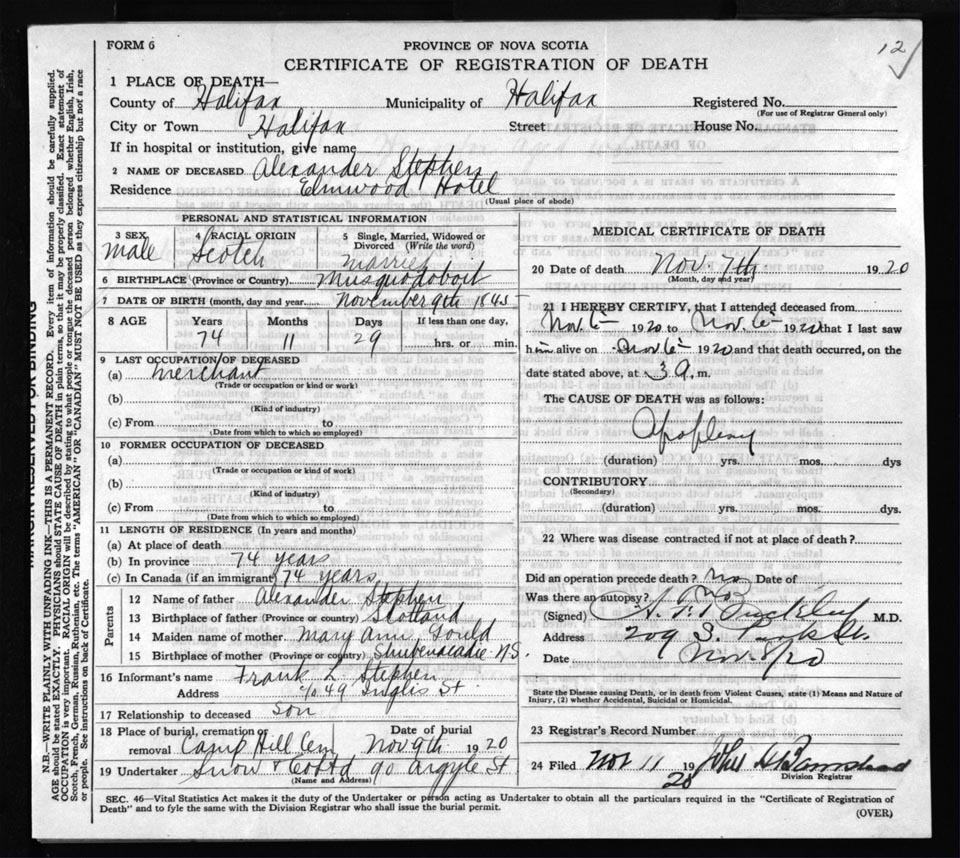 FORM 6
PROVINCE OF NOVA SCOTIA
12
CERTIFICATE OF REGISTRATION OF DEATH
1 PLACE OF DEATH—
County of Halifax Municipality of Halifax Registered No.
(For use of Registrar General only)
City or Town Halifax Street House No.
If in hospital or institution, give name
2 NAME OF DECEASED Alexander Stephen
Residence Elmwood Hotel
(Usual place of abode)
PERSONAL AND STATISTICAL INFORMATION
3 SEX 4 RACIAL ORIGIN 5 Single, Married, Widowed or Divorced (Write the word)
male Scotch married
6 BIRTHPLACE (Province or Country) Musquodoboit
7 DATE OF BIRTH (month, day and year) November 9th 1845
8 AGE Years Months Days If less than one day,
74 11 29 hrs. or min.
9 LAST OCCUPATION OF DECEASED
(a) merchant
(Trade or occupation or kind of work)
(b)
(Kind of industry)
(c) From to
(Date from which to which so employed)
10 FORMER OCCUPATION OF DECEASED
(a)
(Trade or occupation or kind of work)
(b)
(Kind of industry)
(c) From to
(Date from which to which so employed)
11 LENGTH OF RESIDENCE (In years and months)
(a) At place of death
(b) In province 74 years
(c) In Canada (if an immigrant) 74 years
Parents
12 Name of father Alexander Stephen
13 Birthplace of father (Province or country) Scotland
14 Maiden name of mother Mary Ann Gould
15 Birthplace of mother (Province or country) Shubenacadie N.S.
16 Informant's name Frank L Stephen
Address c/o 49 Inglis St
17 Relationship to deceased son
18 Place of burial, cremation or removal Camp Hill Cem Date of burial Nov 9th 1920
19 Undertaker Snow & Co Ltd 90 Argyle St
(Name and Address)
MEDICAL CERTIFICATE OF DEATH
20 Date of death Nov. 7th 1920
(Month, day and year)
21 I HEREBY CERTIFY, that I attended deceased from
Nov. 6 1920 to Nov. 6 1920 that I last saw
him alive on Nov. 6 1920 and that death occurred, on the
date stated above, at 3 a. m.
The CAUSE OF DEATH was as follows:
Apoplexy
(duration) yrs. mos. dys
CONTRIBUTORY
(Secondary)
(duration) yrs. mos. dys.
22 Where was disease contracted if not at place of death?
Did an operation precede death? no Date of
Was there an autopsy? no
(Signed) M.D.
Address 209 S. Park St.
Date Nov 8/20
State the Disease causing Death, or in death from Violent Causes, state (1) Means and Nature of
Injury, (2) whether Accidental, Suicidal or Homicidal.
23 Registrar's Record Number
24 Filed Nov 11 1920
Division Registrar
SEC. 46—Vital Statistics Act makes it the duty of the Undertaker or person acting as Undertaker to obtain all the particulars required in the "Certificate of Registration of
Death" and to fyle the same with the Division Registrar who shall issue the burial permit.
(OVER)
MARGIN RESERVED FOR BINDING
N.B.—WRITE PLAINLY WITH UNFADING INK—THIS IS A PERMANENT RECORD. Every item of information should be carefully supplied.
AGE should be stated EXACTLY. PHYSICIANS should STATE CAUSE OF DEATH in plain terms, so that it may be properly classified. Exact statement of
OCCUPATION is very important. RACIAL ORIGIN will be described by stating to what people or tongue the deceased person belonged whether English, Irish,
Scotch, French, German, Russian, Ruthenian, etc. The terms "AMERICAN" OR "CANADIAN" MUST NOT BE USED as they express citizenship but not a race
or people. See instructions on back of Certificate.